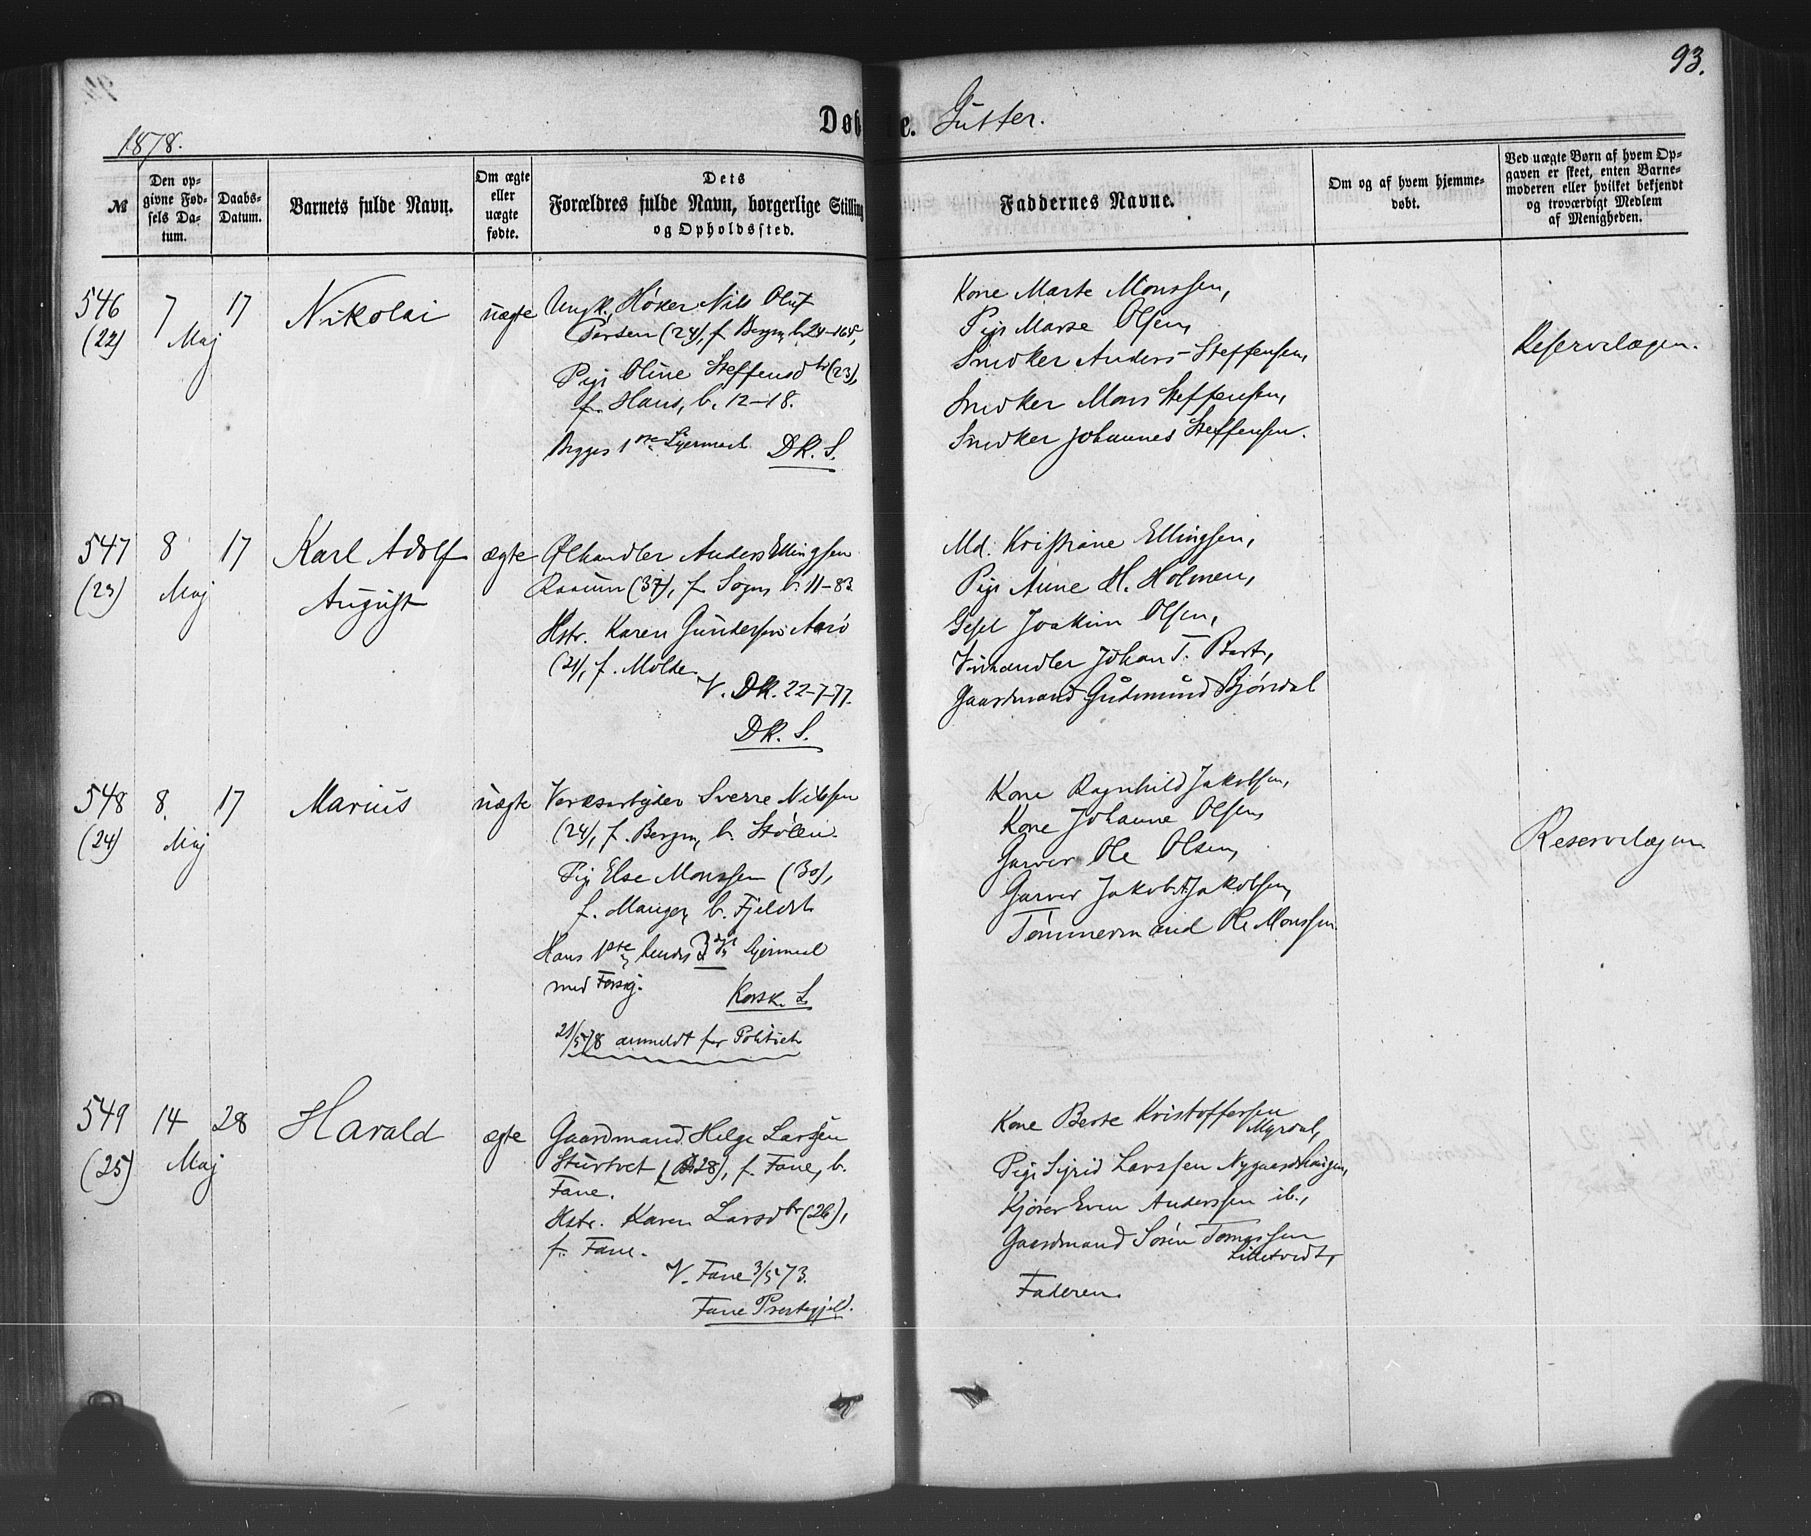 93.
1878.
Døbte. Gutter.
№
Den opgivne Fødsels Datum.
Daabs-Datum.
Barnets fulde Navn.
Om ægte eller uægte fødte.
Dets Forældres fulde Navn, borgerlige Stilling og Opholdssted.
Faddernes Navne.
Om og af hvem hjemmedøbt.
Ved uægte Børn af hvem Opgaven er skeet, enten Barnemoderen eller hvilket bekjendt og troværdigt Medlem af Menigheden.
546 (22)
7 Maj
17
Nikolai
uægte
Ungk. Høker Nils Oluf
Persen (24), f. Bergen, b. 24-165,
Pige Oline Steffensdtr (23),
f. Haus, b. 12-18.
Begges 1ste Lejermaal. DK. S.
Kone Marte Monssen,
Pige Marie Olsen,
Snedker Anders Steffensen,
Snedker Mons Steffensen,
Snedker Johannes Steffensen.
Reservelægen.
547 (23)
8 Maj
17
Karl Adolf
August
ægte
Ølhandler Anders Ellingsen
(37), f. Sogn, b. 11-83
Hstr. Karen Gundersen Aarø
(21), f. Molde.
V. DK. 22-7-77.
DK. S.
Md. Kristiane Ellingsen,
Pige Anne H. Holmen,
Gesel Joakim Olsen,
Vinhandler Johan T. Bert,
Gaardmand Gudmund Bjørdal
548 (24)
8. Maj
17
Marius
uægte
Verksarbejder Sverre Nilssen
(24), f. Bergen, b. Stølen.
Pige Else Monssen (30),
f. Manger, b. Fjeldet
Hans 1ste, hendes 3die Lejermaal
med Forsig. Korsk. S.
21/5 78 anmeldt for Politiet
Kone Ragnhild Jakobsen,
Kone Johanne Olsen,
Garver Ole Olsen,
Garver Jakob A. Jakobsen,
Tømmermand Ole Monssen.
Reservelægen
549 (25)
14 Maj
28
Harald
ægte
Gaardmand Helge Larssen
Sturtvet (28), f. Fane, b.
Fane.
Hstr. Karen Larsdtr (26),
f. Fane.
V. Fane 3/5 73.
Fane Prestegjeld.
Kone Berte Kristoffersen
Myrdal,
Pige Sigrid Larssen Nygaardshaugen,
Kjører Even Anderssen ib.,
Gaardmand Søren Tomassen
Lilletvedt,
Faderen.